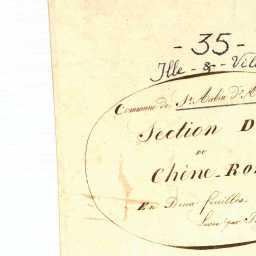 - 35 -
Ille - & - Vil
Commune de St. Aubin d'A
Section D
DU
Chêne-Ro
En Deux feuilles.
Levée par